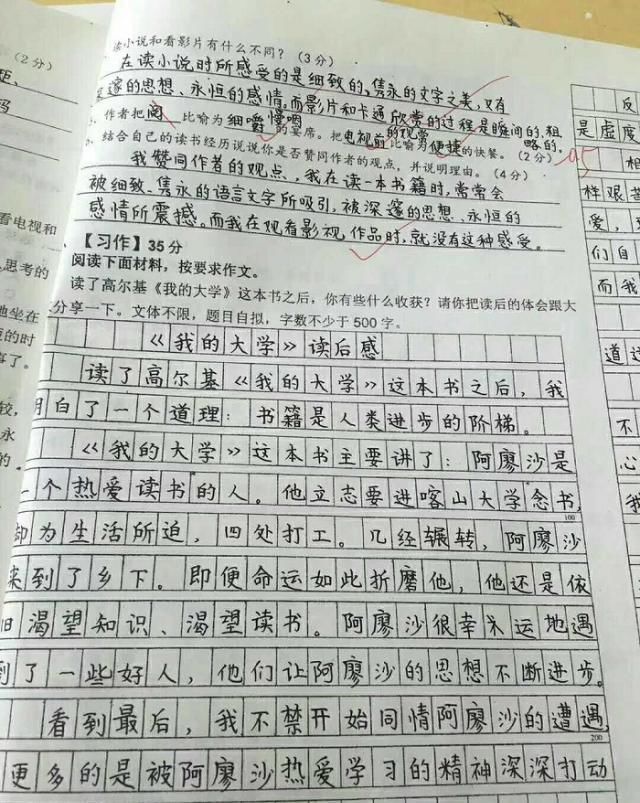 读小说和看影片有什么不同？（3分）
在读小说时所感受的是细致的、隽永的文字之美，又有
邃的思想、永恒的感情。而影片和卡通欣常的过程是瞬间的、粗
略的。
作者把阅 比喻为细嚼慢咽的宴席。把电视的 比喻为便捷的快餐。（2分）
结合自己的读书经历说说你是否赞同作者的观点，并说明理由。（4分）
我赞同作者的观点、我在读一本书籍时，常常会
被细致、隽永的语言文字所吸引，被深邃的思想、永恒的
感情所震撼。而我在观看影视作品时，就没有这种感受。
【习作】35分
阅读下面材料，按要求作文。
读了高尔基《我的大学》这本书之后，你有些什么收获？请你把读后的体会跟大
分享一下。文体不限，题目自拟，字数不少于500字。
《我的大学》读后感
读了高尔基《我的大学》这本书之后，我
明白了一个道理：书籍是人类进步的阶梯。
《我的大学》这本书主要讲了：阿廖沙是
一个热爱读书的人。他立志要进喀山大学念书，
100
却为生活所迫，四处打工。几经辗转，阿廖沙
来到了乡下。即便命运如此折磨他，他还是依
旧渴望知识、渴望读书。阿廖沙很幸运地遇
到了一些好人，他们让阿廖沙的思想不断进步。
看到最后，我不禁开始同情阿廖沙的遭遇，
200
更多的是被阿廖沙热爱学习的精神深深打动
（2分）
码
看电视和
思考的
地坐在
的时
了。
较，
永
的。
反
是虚度
95
相
样艰苦
爱，
们自
而我
道这
不
心
我